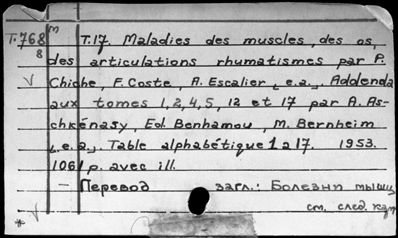 m
T.768 T.17. Maladies des muscles, des os,
8 des articulations rhumatismes par P.
V Chiche, F. Coste, A. Escalier, [e.a.], Addenda
aux tomes 1,2,4,5, 12 et 17 par A. As-
chkénasy, Ed. Benhamou, M. Bernheim
[e.a.]. Table alphabétique 1 à 17. 1953.
1061 p. avec ill.
— Перевод загл.: Болезни мышц
* V см. след. кар